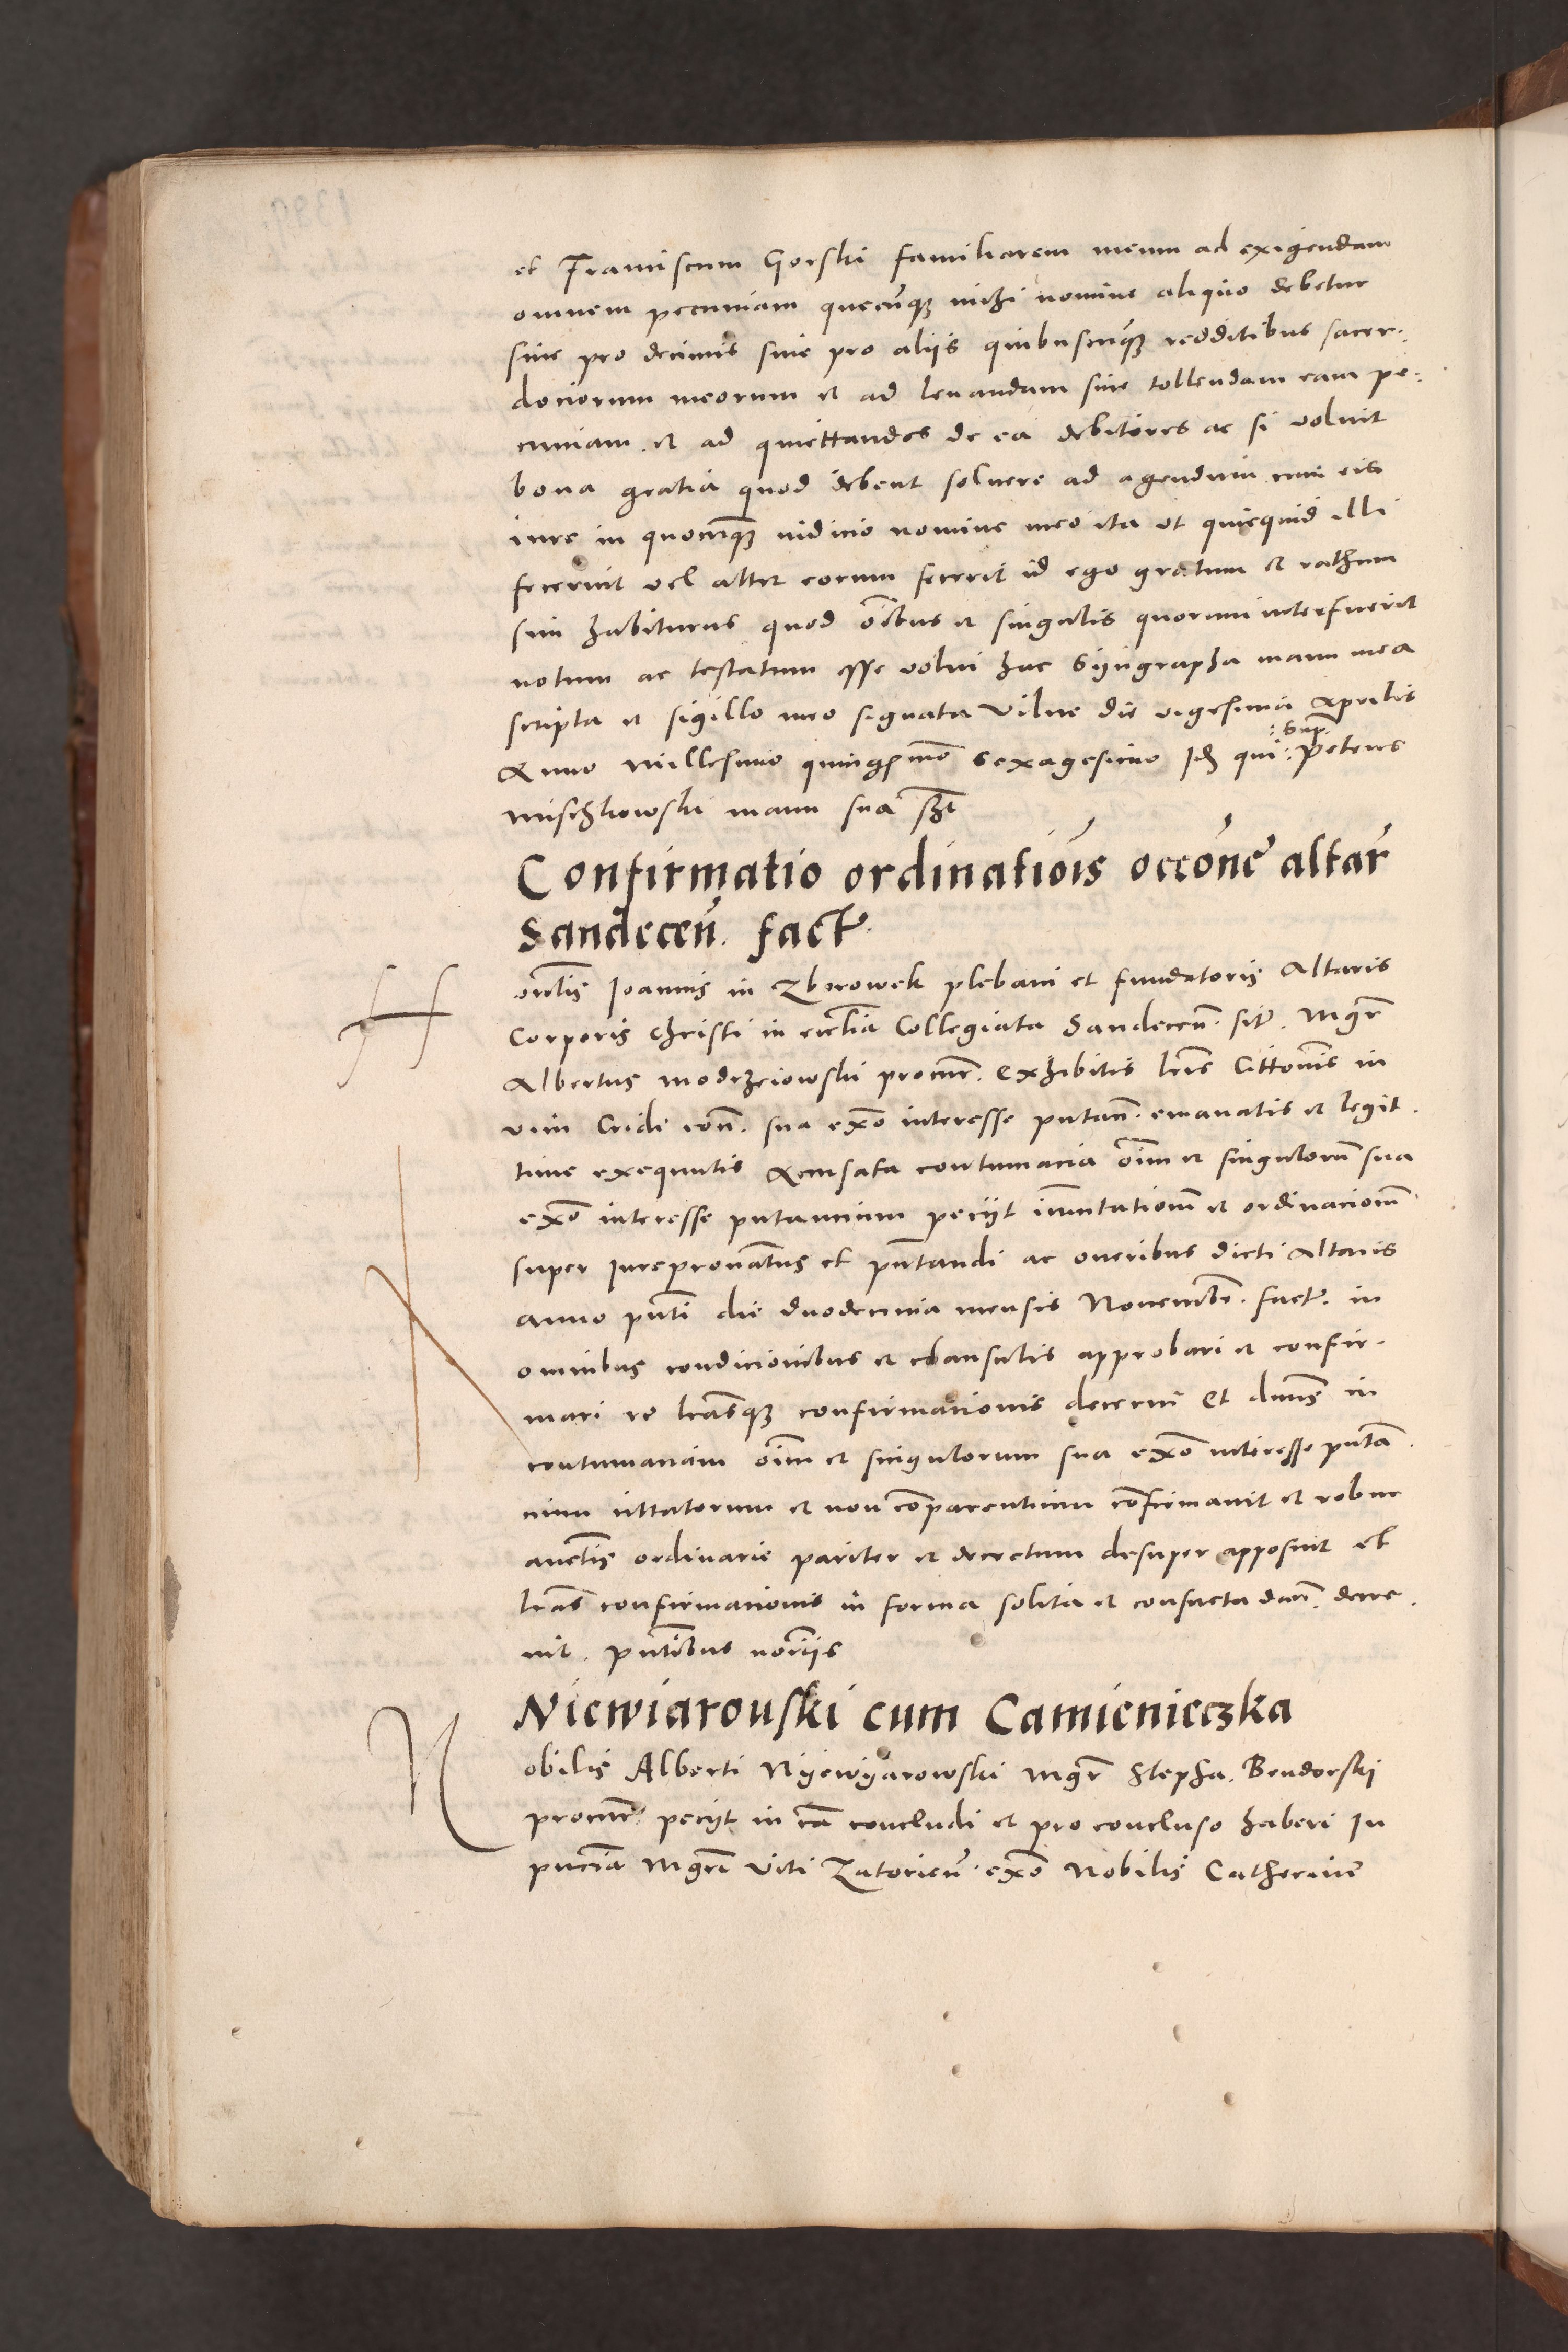 et Franciscum Gorski familiarem meum ad exigendam
omnem pecuniam quecu̅q₃ michi nomine aliquo debetur
siue pro decimis siue pro aliis quibuscu̅q₃ redditibus sacer:
dociorum meorum et ad leuandam siue tollendam eam pe:
cuniam et ad quiettandos de ea debitores ac si voluit
bona gratia quod debent soluere ad agendum cum eis
iure in quocu̅q₃ iudicio nomine meo ita vt quicquid illi
fecerint vel alter eorum fecerit id ego gratum et rathum
sim habiturus quod oı̅bus et singulis quorum interfuerit
notum ac testatum esse volui hac Syngrapha manu mea
scripta et sigillo meo signata Vilne die vigesima Aprilis
:Sup̅
Anno Millesimo quingͤmo sexagesimo Id̅ qui: Petrus
Mischkowski manu sua sz̅t
Confirmatio ordinatiois occo̅ne altar̅
Sandecen̅. fact̅.
H
on̅lis Ioannis in Zborowek plebani et fundatoris Altaris
Corporis Christi in eccl̅ia Collegiata Sandecen̅. sit̅. Mgr̅
Albertus Modrzeiowski procur̅. exhibitis lr̅is Citto̅nis in
vim Cride con̅. sua ex̅o interesse putan̅. emanatis et legit.
time exequutis Accusata contumacia oı̅m et singulorum sua
ex̅o interesse putancium peciit im̅utationem et ordinacionem
super Iurepronatus et pn̅tandi ac oneribus dicti Altaris
anno pn̅ti die duodecima mensis Nouembr̅. fact̅. in
omnibus condicionibus et clausulis approbari et confir.
mari ac lr̅asq₃ confirmacionis decerni Et dn̅us in
contumaciam oı̅m et singulorum sua ex̅o interesse putan̅.
cium cittatorum et non co̅parentium co̅firmauit et robur
auct̅is ordinarie pariter et decretum desuper apposuit et
lr̅as confirmacionis in forma solita et consueta dan̅. decre.
uit. pn̅tibus nor̅iis
Niewiarouski cum Camienieczka
N
obilis Alberti Nyewyarowski Mgr̅ Stepha. Bendorski
procur̅. peciit in ca̅ concludi et pro concluso haberi In
pn̅cia Mgr̅i Viti Zatorien̅. ex̅o Nobilis Catherine